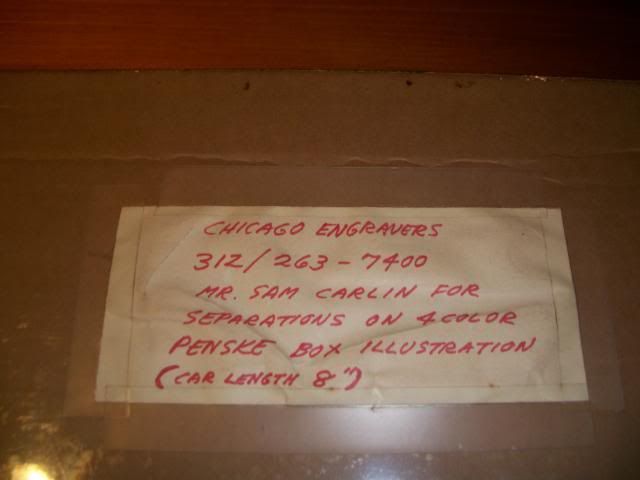 CHICAGO ENGRAVERS
312/263-7400
MR. SAM CARLIN FOR
SEPARATIONS ON 4 COLOR
PENSKE BOX ILLUSTRATION
(CAR LENGTH 8")